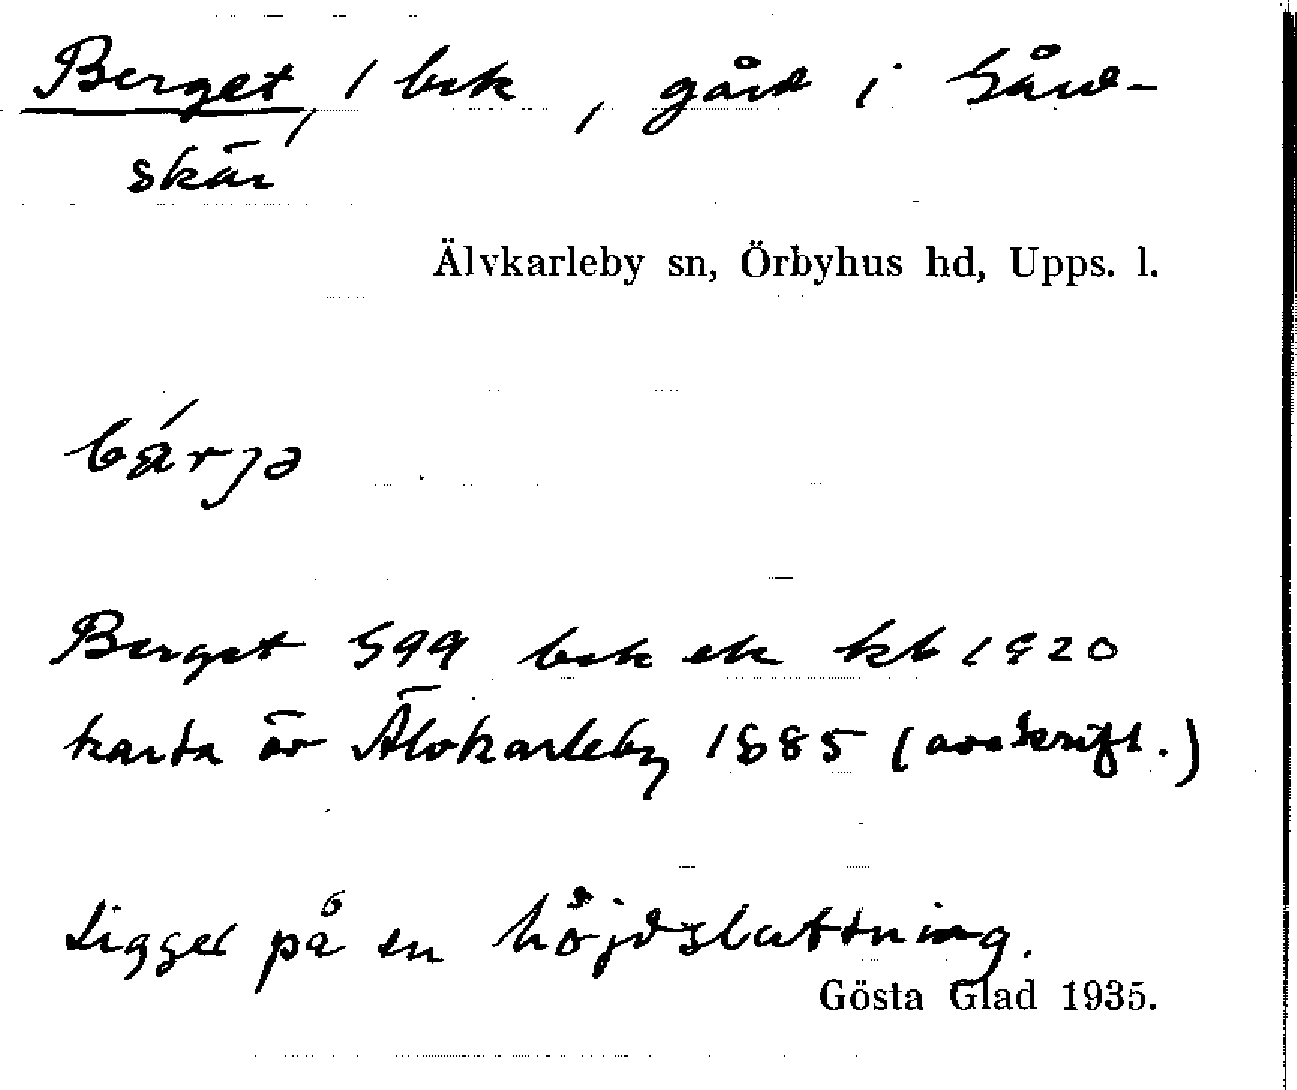 Berget, 1 bek, gård i Gård-
skär
Älvkarleby sn, Örbyhus hd, Upps. l.
bärjə
Berget 599 bek ek kb 1920
karta öv Älvkarleby 1885 (avskrift.)
Ligger på en höjdsluttning.
Gösta Glad 1935.